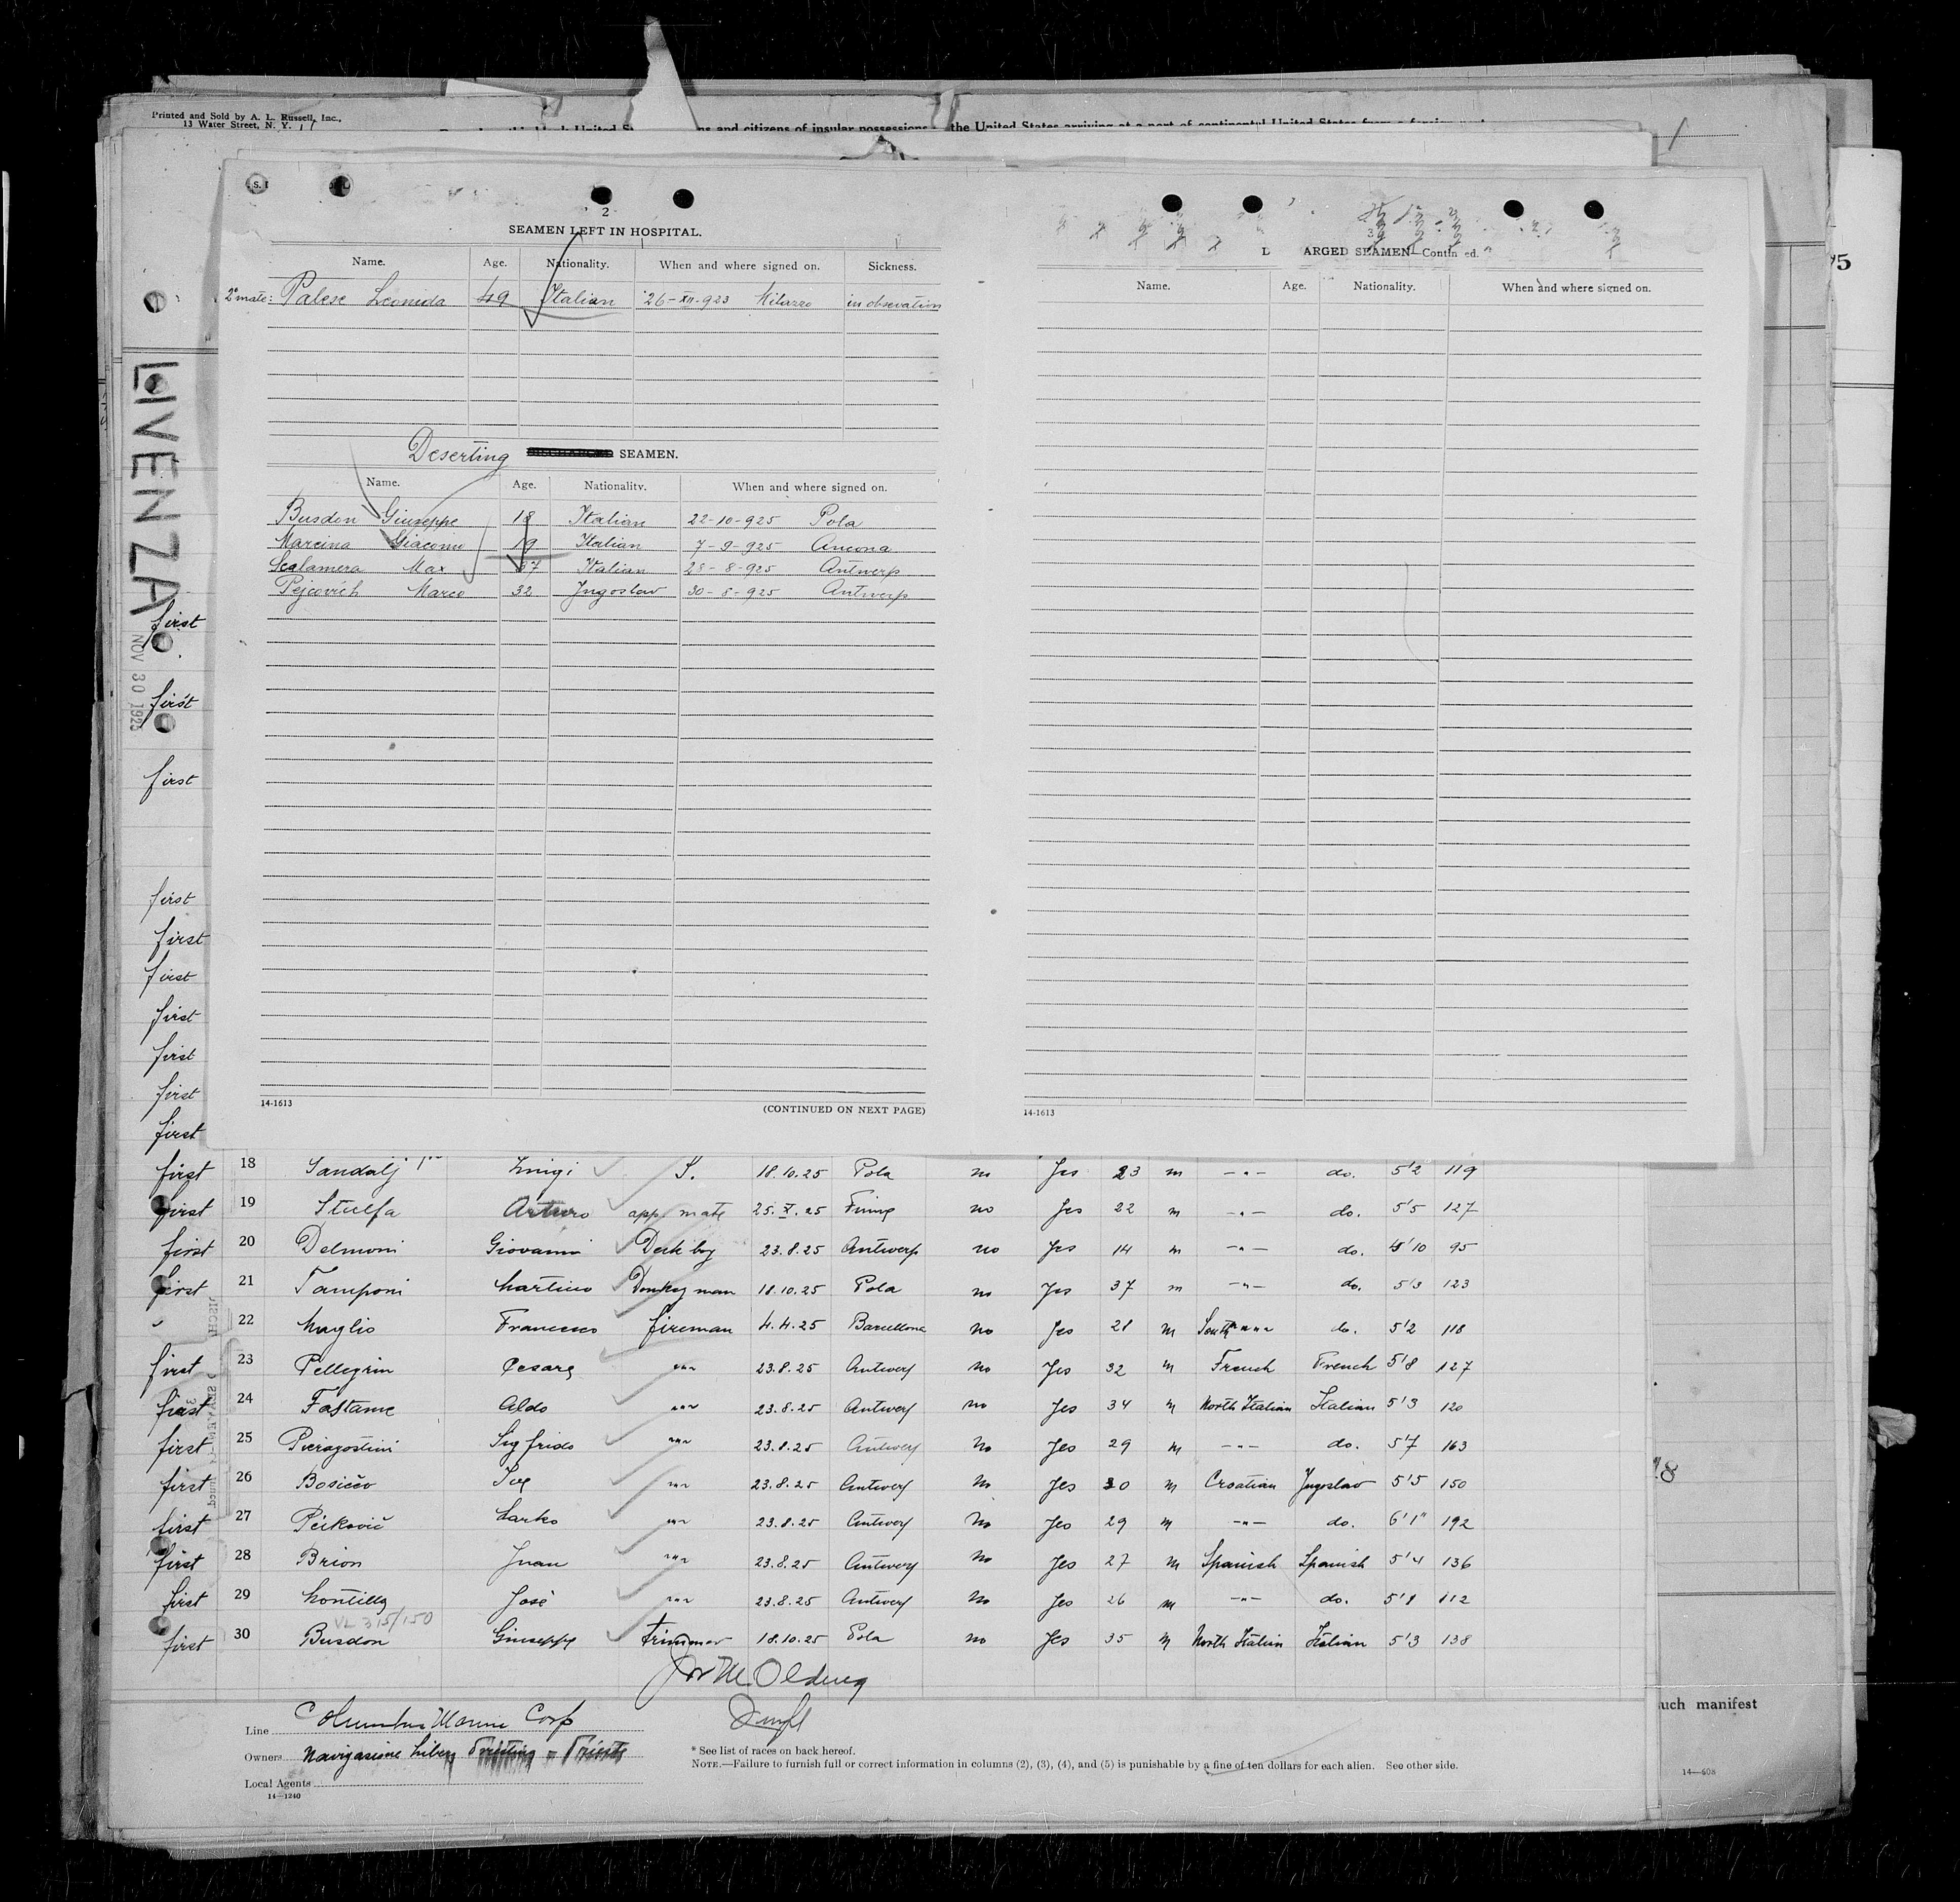 Printed and Sold by A. L. Russell, Inc.,
13 Water Street, N. Y.
the United States arriving at a port of continental United States from a foreign
2
SEAMEN LEFT IN HOSPITAL.
Name. Age. Nationality. When and where signed on. Sickness.
2º mate: Palese Leonida 49 Italian 26-XII-923 Milazzo in obsevation
Deserting SEAMEN.
Name. Age. Nationality. When and where signed on.
Busdon Giuseppe 18 Italian 22-10-925 Pola
Marcina Giacomo 19 Italian 7-9-925 Ancona
Scalamera Max 37 Italian 28-8-925 Antwerp
Pejcovich Marco 32 Jugoslav 30-8-925 Antwerp
14-1613 (CONTINUED ON NEXT PAGE)
ARGED SEAMEN—Contin ed.
Name. Age. Nationality. When and where signed on.
14-1613
LIVENZA
NOV 30 1925
first
first
first
first
first
first
first
first
first
first
first 18 Sandalj Luigi S. 18.10.25 Pola no Yes 23 m -"- do. 5'2 119
first 19 Stulfa Arturo app. mate 25.X.25 Fiume no Yes 22 m -"- do. 5'5 127
first 20 Delmoni Giovanni Deck boy 23.8.25 Antwerp no Yes 14 m -"- do. 4'10 95
first 21 Tamponi Martino Donkey man 18.10.25 Pola no Yes 37 m -"- do. 5'3 123
" 22 Muglio Francesco fireman 4.4.25 Barcellona no Yes 28 m South """ do. 5'2 118
first 23 Pellegrin Cesare """ 23.8.25 Antwerp no Yes 32 m French French 5'8 127
first 24 Fastame Aldo """ 23.8.25 Antwerp no Yes 34 m North Italian Italian 5'3 120
first 25 Pieragostini Sigfrido """ 23.8.25 Antwerp no Yes 29 m -"- do. 5'7 163
first 26 Bosicco Ive """ 23.8.25 Antwerp no Yes 30 m Croatian Jugoslav 5'5 150
first 27 Peikovič Zarko """ 23.8.25 Antwerp no Yes 29 m -"- do. 6'1" 192
first 28 Brion Juan """ 23.8.25 Antwerp no Yes 27 m Spanish Spanish 5'4 136
first 29 Montilla José """ 23.8.25 Antwerp no Yes 26 m -"- do. 5'1 112
VL 315/150
first 30 Busdon Giuseppe Trimmer 18.10.25 Pola no Yes 35 m North Italian Italian 5'3 138
Line Columbus Marine Corp
Owners Navigazione Libera Triestina - Trieste
Local Agents
14—1240
* See list of races on back hereof.
NOTE.—Failure to furnish full or correct information in columns (2), (3), (4), and (5) is punishable by a fine of ten dollars for each alien. See other side.
such manifest
14—608